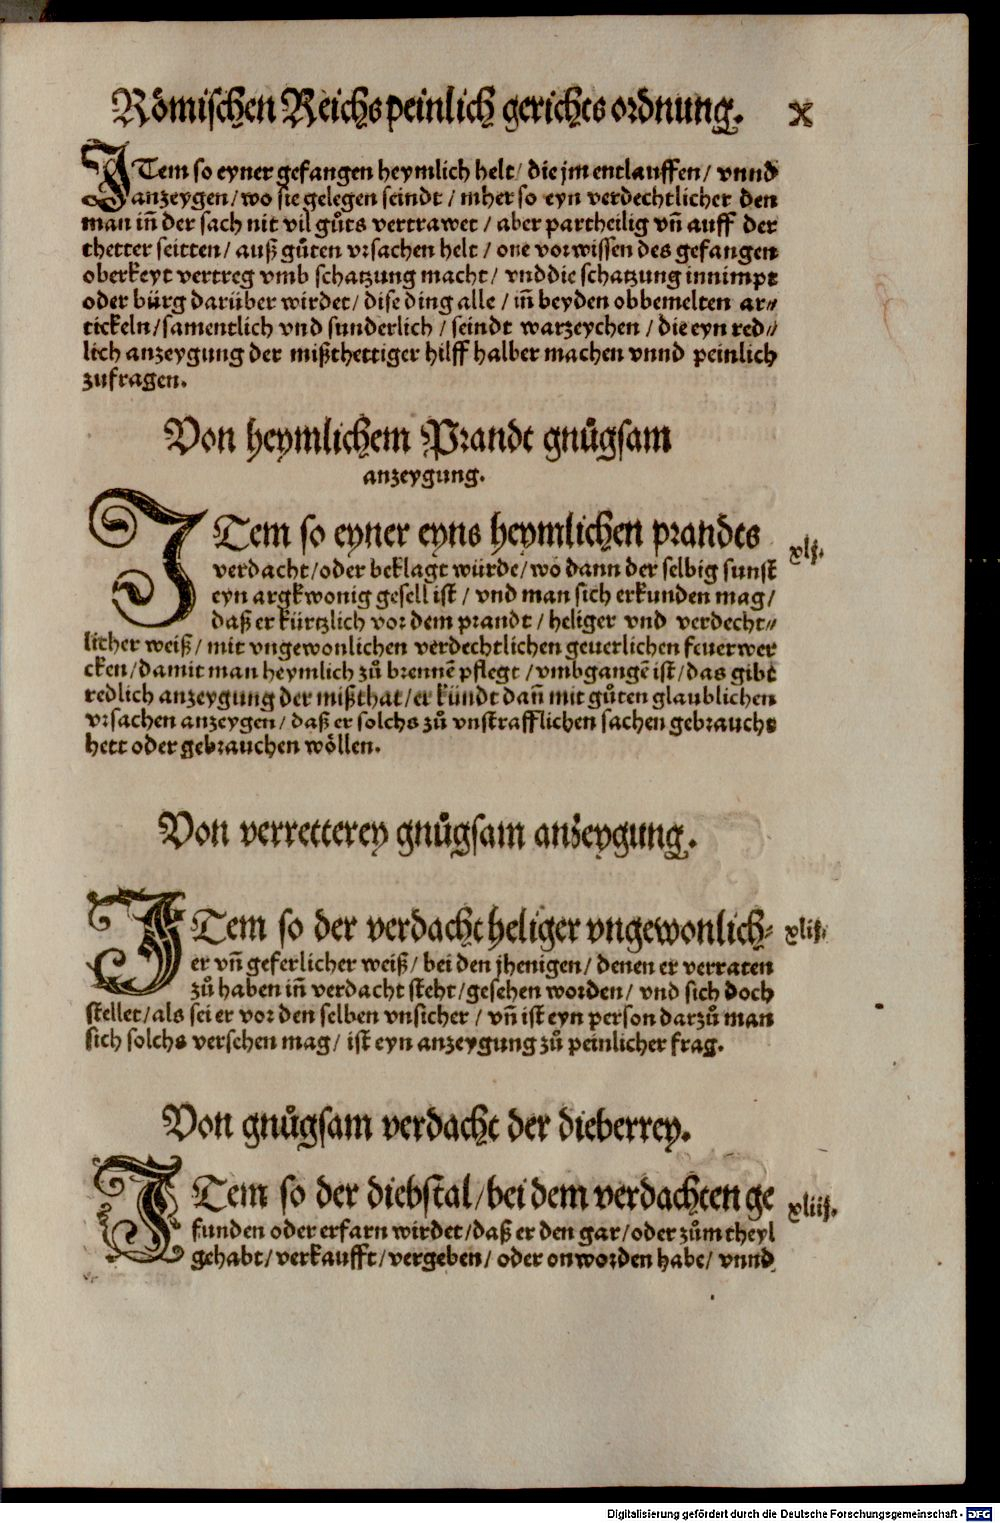 Römischen Reichs peinlich gerichts ordnung. X
ITem so eyner gefangen heymlich helt / die jm entlauffen / vnnd
anzeygen / wo sie gelegen seindt / mher so eyn verdechtlicher den
man in̄ der sach nit vil gůts vertrawet / aber partheilig vn̄ auff der
thetter seitten / auß gůten vrsachen helt / one vorwissen des gefangen
oberkeyt vertreg vmb schatzung macht / vnd die schatzung innimpt
oder bürg darüber wirdet / dise ding alle / in̄ beyden obbemelten ar⸗
tickeln / samentlich vnd sunderlich / seindt warzeychen / die eyn red⸗
lich anzeygung der mißthettiger hilff halber machen vnnd peinlich
zufragen.
Von heymlichem Prandt gnůgsam
anzeygung.
ITem so eyner eyns heymlichen prandts xlj.
verdacht / oder beklagt würde / wo dann der selbig sunst
eyn argkwonig gesell ist / vnd man sich erkunden mag /
daß er kürtzlich vor dem prandt / heliger vnd verdecht⸗
licher weiß / mit vngewonlichen verdechtlichen geuerlichen feuerwer
cken / damit man heymlich zů brennē pflegt / vmbgangē ist / das gibt
redlich anzeygung der mißthat / er kündt dan̄ mit gůten glaublichen
vrsachen anzeygen / daß er solchs zů vnstrafflichen sachen gebraucht
hett oder gebrauchen wöllen.
Von verretterey gnůgsam anzeygung.
ITem so der verdacht heliger vngewonlich⸗ xlij.
er vn̄ geferlicher weiß / bei den jhenigen / denen er verraten
zů haben in̄ verdacht steht / gesehen worden / vnd sich doch
stellet / als sei er vor den selben vnsicher / vn̄ ist eyn person darzů man
sich solchs versehen mag / ist eyn anzeygung zů peinlicher frag.
Von gnůgsam verdacht der dieberrey.
ITem so der diebstal / bei dem verdachten ge xliij.
funden oder erfarn wirdet / daß er den gar / oder zům theyl
gehabt / verkaufft / vergeben / oder onworden habe / vnnd
Digitalisierung gefördert durch die Deutsche Forschungsgemeinschaft - DFG